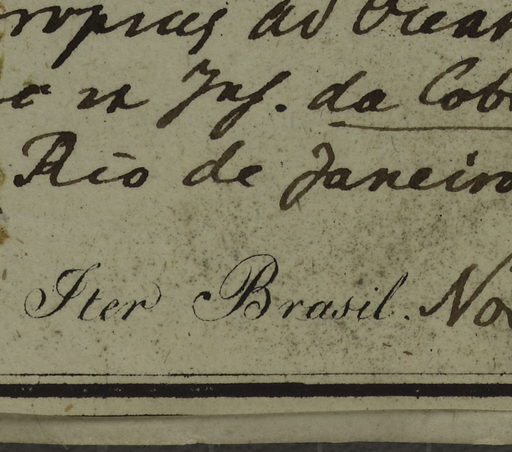 ropicis ad Ocean
in Ins. da Cob
Rio de Janeiro
Iter Brasil. No